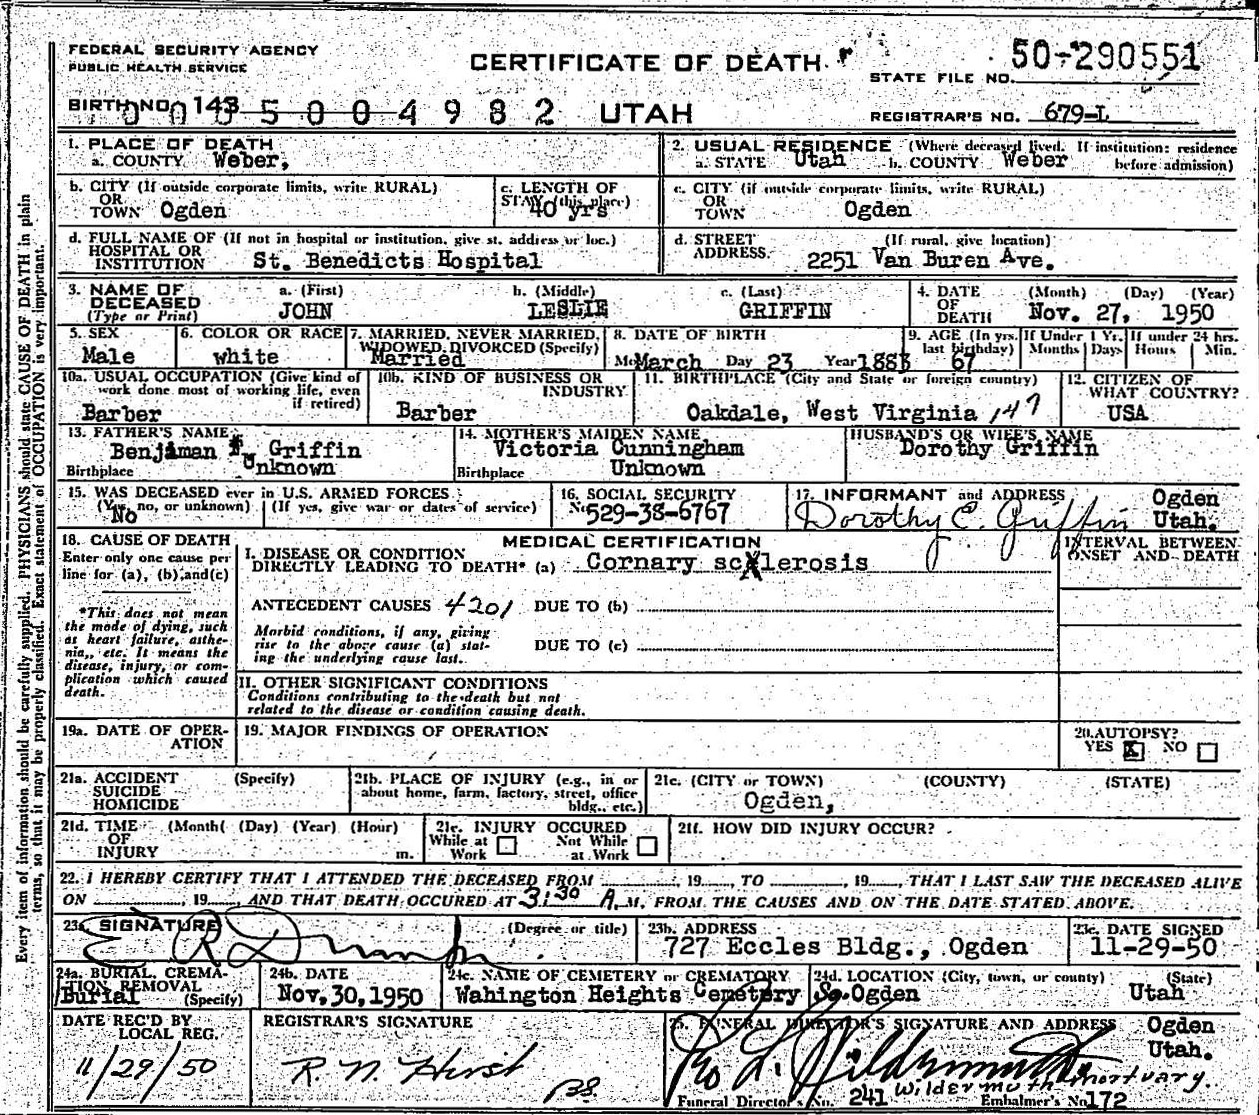 FEDERAL SECURITY AGENCY
PUBLIC HEALTH SERVICE
CERTIFICATE OF DEATH
STATE FILE NO. 50-290551
BIRTH NO. 143
0005004982 UTAH
REGISTRAR'S NO. 679-L
1. PLACE OF DEATH
a. COUNTY Weber,
2. USUAL RESIDENCE (Where deceased lived. If institution: residence before admission)
a. STATE Utah b. COUNTY Weber
b. CITY (If outside corporate limits, write RURAL)
OR
TOWN Ogden
c. LENGTH OF
STAY (this place)
40 yrs
c. CITY (if outside corporate limits, write RURAL)
OR
TOWN Ogden
d. FULL NAME OF (If not in hospital or institution, give st. address or loc.)
HOSPITAL OR
INSTITUTION St. Benedicts Hospital
d. STREET (If rural, give location)
ADDRESS. 2251 Van Buren Ave.
3. NAME OF
DECEASED
(Type or Print)
a. (First) b. (Middle) c. (Last)
JOHN LESLIE GRIFFIN
4. DATE (Month) (Day) (Year)
OF
DEATH Nov. 27, 1950
5. SEX
Male
6. COLOR OR RACE
white
7. MARRIED, NEVER MARRIED,
WIDOWED, DIVORCED (Specify)
Married
8. DATE OF BIRTH
Mo March Day 23 Year 1883
9. AGE (In yrs. last birthday)
67
If Under 1 Yr.
Months Days
If under 24 hrs.
Hours Min.
10a. USUAL OCCUPATION (Give kind of
work done most of working life, even
if retired)
Barber
10b. KIND OF BUSINESS OR
INDUSTRY
Barber
11. BIRTHPLACE (City and State or foreign country)
Oakdale, West Virginia 147
12. CITIZEN OF
WHAT COUNTRY?
USA
13. FATHER'S NAME
Benjiman F. Griffin
Birthplace Unknown
14. MOTHER'S MAIDEN NAME
Victoria Cunningham
Birthplace Unknown
HUSBAND'S OR WIFE'S NAME
Dorothy Griffin
15. WAS DECEASED ever in U.S. ARMED FORCES
(Yes, no, or unknown) (If yes, give war or dates of service)
No
16. SOCIAL SECURITY
No. 529-38-6767
17. INFORMANT and ADDRESS
Dorothy E. Griffin
Ogden
Utah.
18. CAUSE OF DEATH
Enter only one cause per
line for (a), (b), and (c)
*This does not mean
the mode of dying, such
as heart failure, asthe-
nia, etc. It means the
disease, injury, or com-
plication which caused
death.
MEDICAL CERTIFICATION
INTERVAL BETWEEN
ONSET AND DEATH
I. DISEASE OR CONDITION
DIRECTLY LEADING TO DEATH* (a) Cornary sclerosis
ANTECEDENT CAUSES 4201 DUE TO (b)
Morbid conditions, if any, giving
rise to the above cause (a) stat-
ing the underlying cause last.
DUE TO (c)
II. OTHER SIGNIFICANT CONDITIONS
Conditions contributing to the death but not
related to the disease or condition causing death.
19a. DATE OF OPER-
ATION
19. MAJOR FINDINGS OF OPERATION
20. AUTOPSY?
YES X NO
21a. ACCIDENT (Specify)
SUICIDE
HOMICIDE
21b. PLACE OF INJURY (e.g., in or
about home, farm, factory, street, office
bldg., etc.)
21c. (CITY or TOWN) (COUNTY) (STATE)
Ogden,
21d. TIME (Month( (Day) (Year) (Hour)
OF
INJURY m.
21e. INJURY OCCURED
While at Work Not While at Work
21f. HOW DID INJURY OCCUR?
22. I HEREBY CERTIFY THAT I ATTENDED THE DECEASED FROM , 19 , TO , 19 , THAT I LAST SAW THE DECEASED ALIVE
ON , 19 , AND THAT DEATH OCCURED AT 3:30 A. M. FROM THE CAUSES AND ON THE DATE STATED ABOVE.
23a SIGNATURE (Degree or title)
23b. ADDRESS
727 Eccles Bldg., Ogden
23c. DATE SIGNED
11-29-50
24a. BURIAL, CREMA-
TION REMOVAL
Burial (Specify)
24b. DATE
Nov, 30, 1950
24c. NAME OF CEMETERY or CREMATORY
Wahington Heights Cemetery
24d. LOCATION (City, town, or county) (State)
So. Ogden Utah
DATE REC'D BY
LOCAL REG.
11/29/50
REGISTRAR'S SIGNATURE
R. N. Hirst
25. FUNERAL DIRECTOR'S SIGNATURE AND ADDRESS Ogden
Utah.
Wildermuth Mortuary.
Funeral Director's No. 241 Embalmer's No. 172
Every item of information should be carefully supplied. PHYSICIANS should state CAUSE OF DEATH in plain
terms, so that it may be properly classified. Exact statement of OCCUPATION is very important.